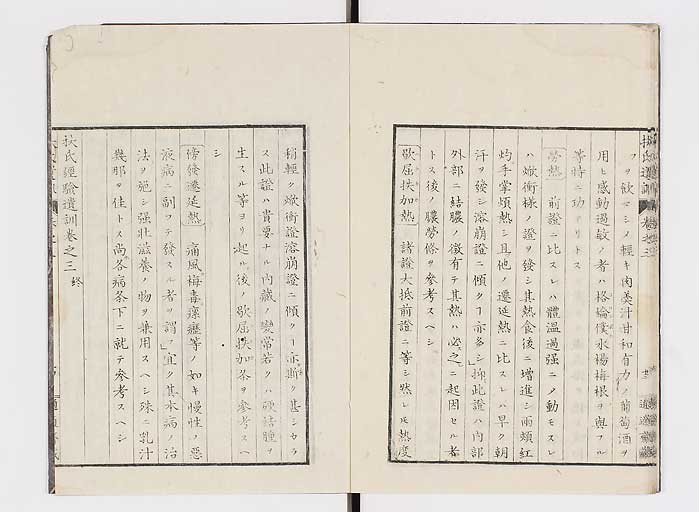 フヲ欲セシメ輕キ肉羹汁甘和有力ノ葡萄酒ヲ
用ヒ感動過敏ノ者ハ格綸僕水楊梅根ヲ與フル
等時ニ功アリトス
勞熱 前證ニ比スレハ體温過強ニノ動モスレ
ハ焮衝様ノ證ヲ發シ其熱食後ニ增進シ兩頬紅
灼手掌煩熱シ且他ノ遷延熱ニ比スレハ早ク朝
汗ヲ發シ溶崩證ニ傾クヿ亦多シ抑此證ハ内部
外部ニ結膿ノ徴有テ其熱ハ必之ニ起因セル者
トス後ノ膿勞條ヲ參考スヘシ
歇屈挾加熱 諸證大抵前證ニ等シ然レ𪜈熱度
稍輕ク焮衝證溶崩證ニ傾クヿ亦斯ク甚シカラ
ス此證ハ貴要ナル内臓ノ變常若クハ硬結腫ヲ
生スル等ヨリ起ル後ノ歇屈挾加条ヲ參考スヘ
シ
傍發遷延熱 痛風梅毒瘰癧等ノ如キ慢性ノ惡
液病ニ副フテ發スル者ヲ謂フ宜ク其本病ノ治
法ヲ処シ强壯滋養ノ物ヲ兼用スヘシ殊ニ乳汁
幾那ヲ佳トス尚各病条下ニ就テ參考スヘシ
扶氏經驗遺訓巻之三 終